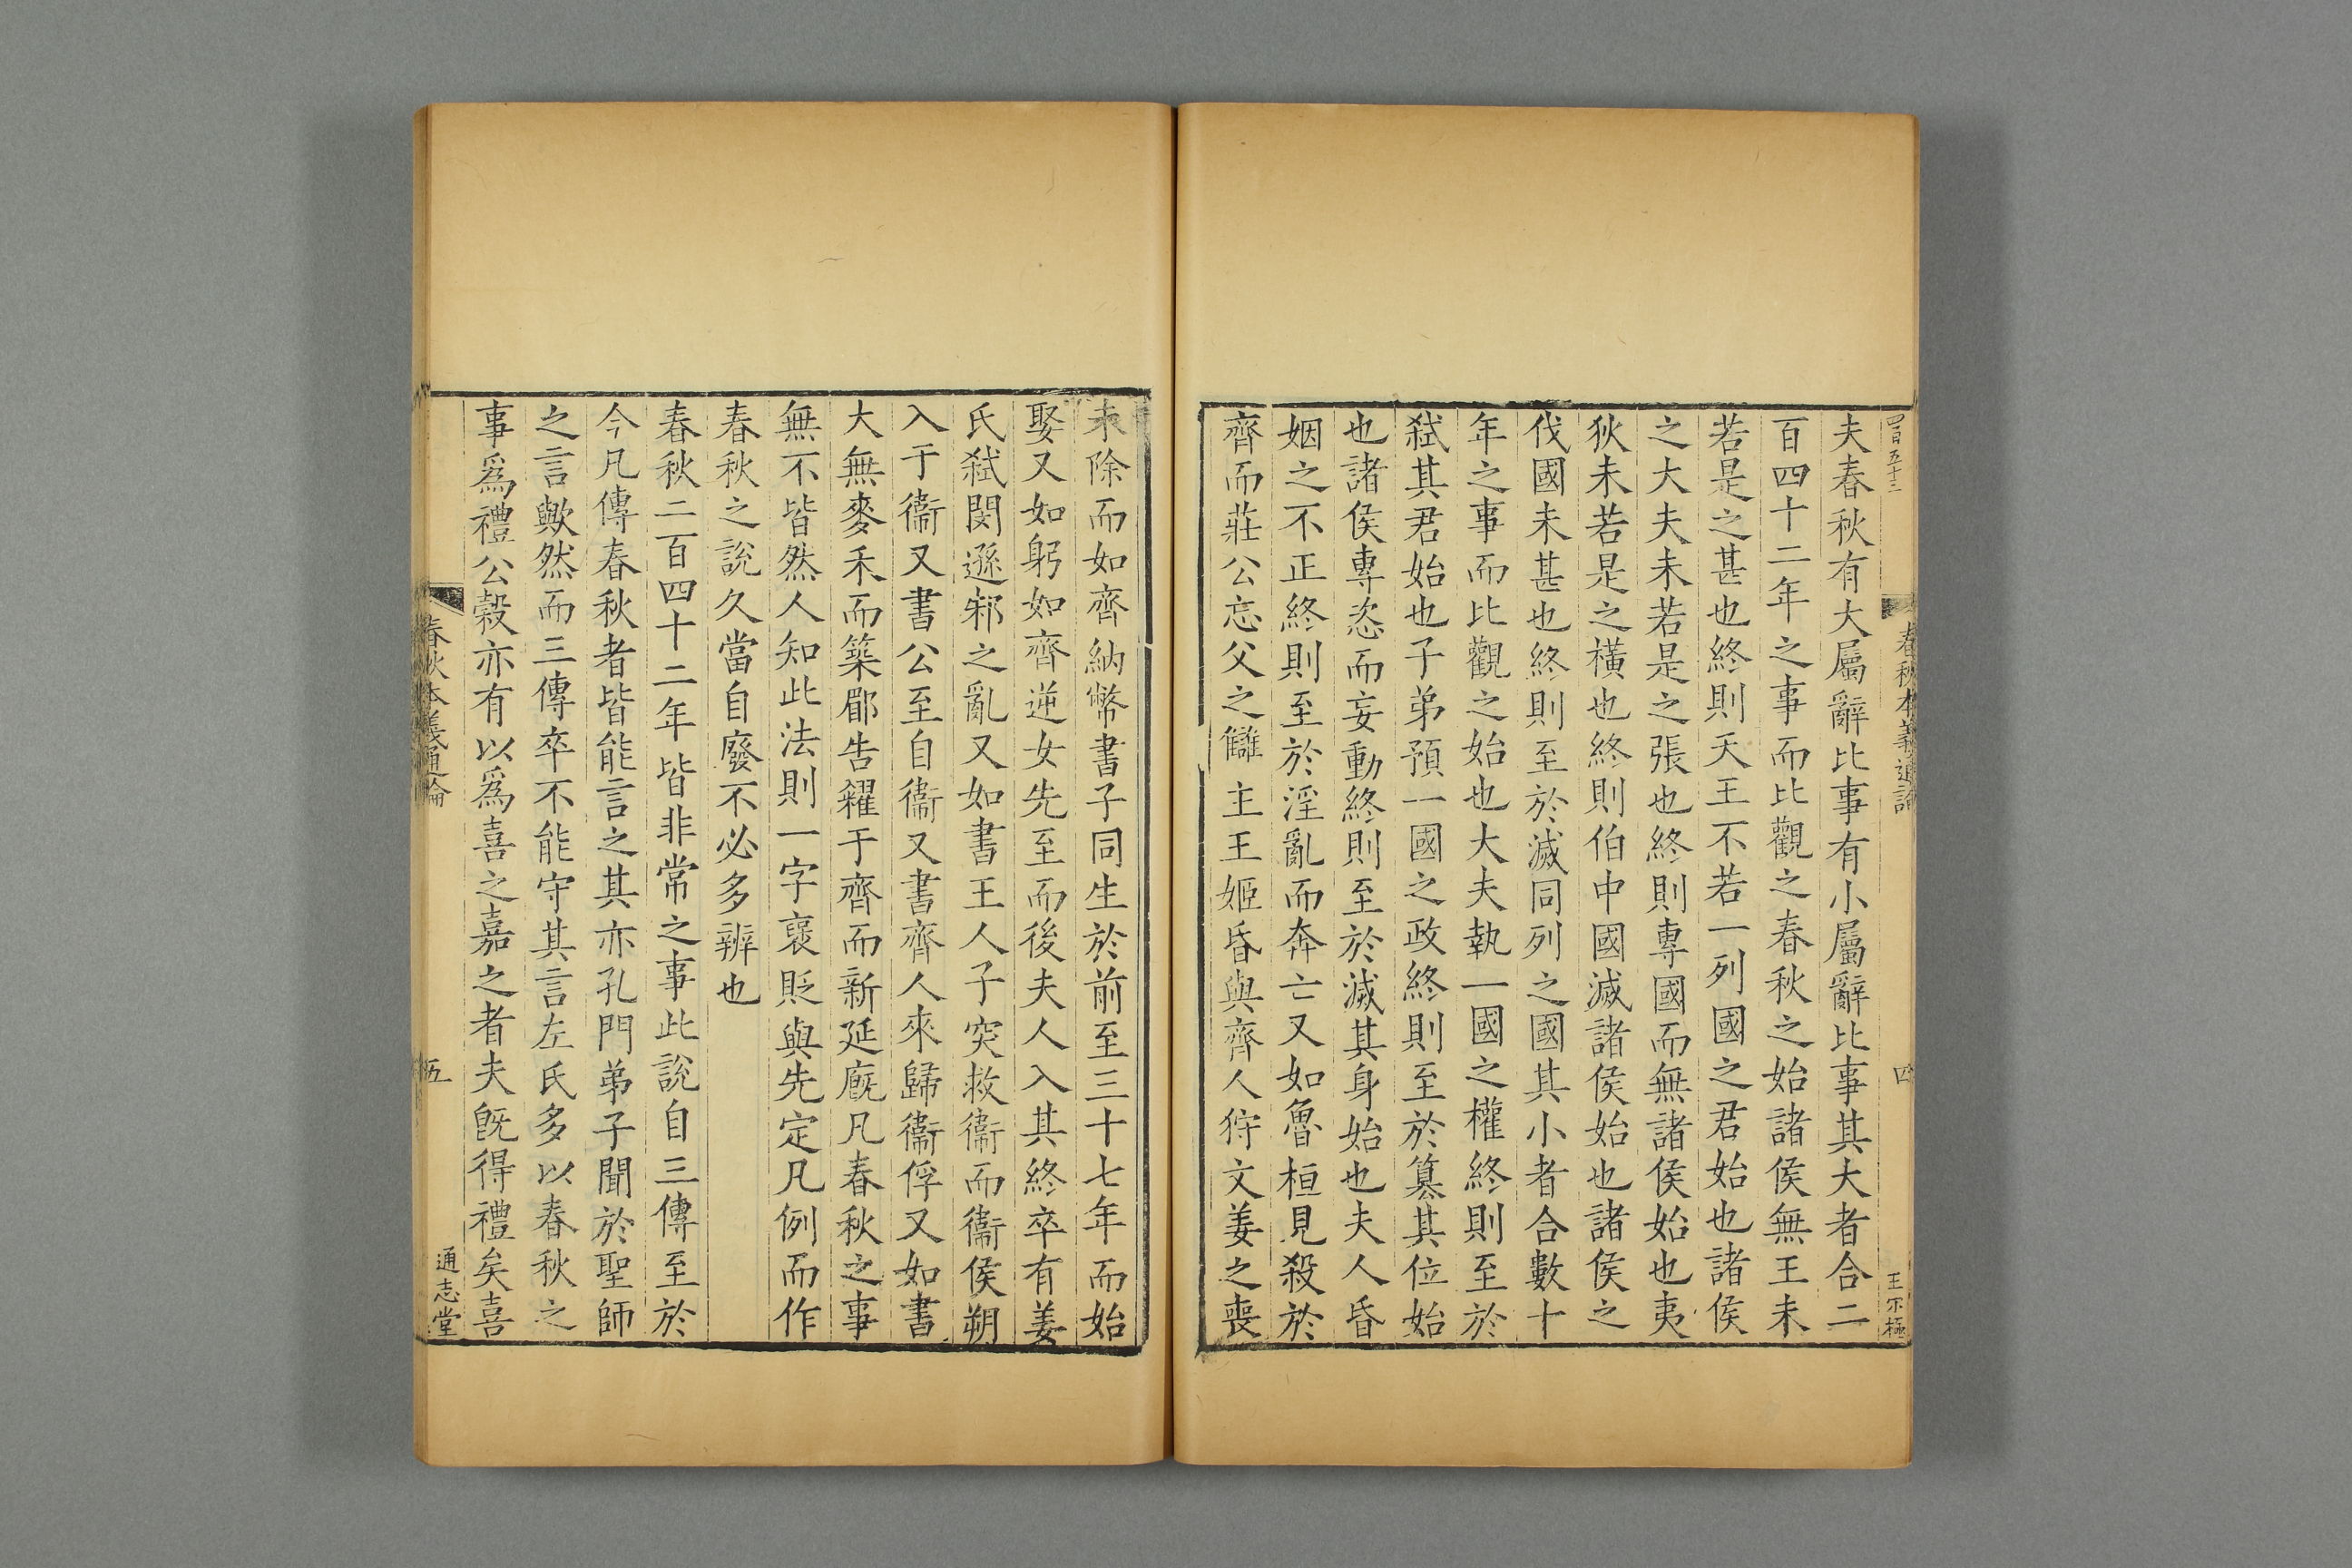 四百五十三
春秋本義通論
四
王爾極
夫春秋有大屬辭比事有小屬辭比事其大者合二
百四十二年之事而比觀之春秋之始諸侯無王未
若是之甚也終則天王不若一列國之君始也諸侯
之大夫未若是之張也終則專國而無諸侯始也夷
狄未若是之橫也終則伯中國滅諸侯始也諸侯之
伐國未甚也終則至於滅同列之國其小者合數十
年之事而比觀之始也大夫執一國之權終則至於
弑其君始也子弟預一國之政終則至於篡其位始
也諸侯專恣而妄動終則至於滅其身始也夫人昏
姻之不正終則至於淫亂而奔亡又如魯桓見殺於
齊而莊公忘父之讎主王姬昏與齊人狩文姜之喪
未除而如齊納幣書子同生於前至三十七年而始
娶又如躬如齊逆女先至而後夫人入其終卒有姜
氏弑閔遜邾之亂又如書王人子突救衞而衞侯朔
入于衞又書公至自衞又書齊人來歸衞俘又如書
大無麥禾而築郿告糴于齊而新延廐凡春秋之事
無不皆然人知此法則一字襃貶與先定凡例而作
春秋之說久當自廢不必多辨也
春秋二百四十二年皆非常之事此說自三傳至於
今凡傳春秋者皆能言之其亦孔門弟子聞於聖師
之言歟然而三傳卒不能守其言左氏多以春秋之
事爲禮公穀亦有以爲喜之嘉之者夫旣得禮矣喜
春秋本義通論
五
通志堂